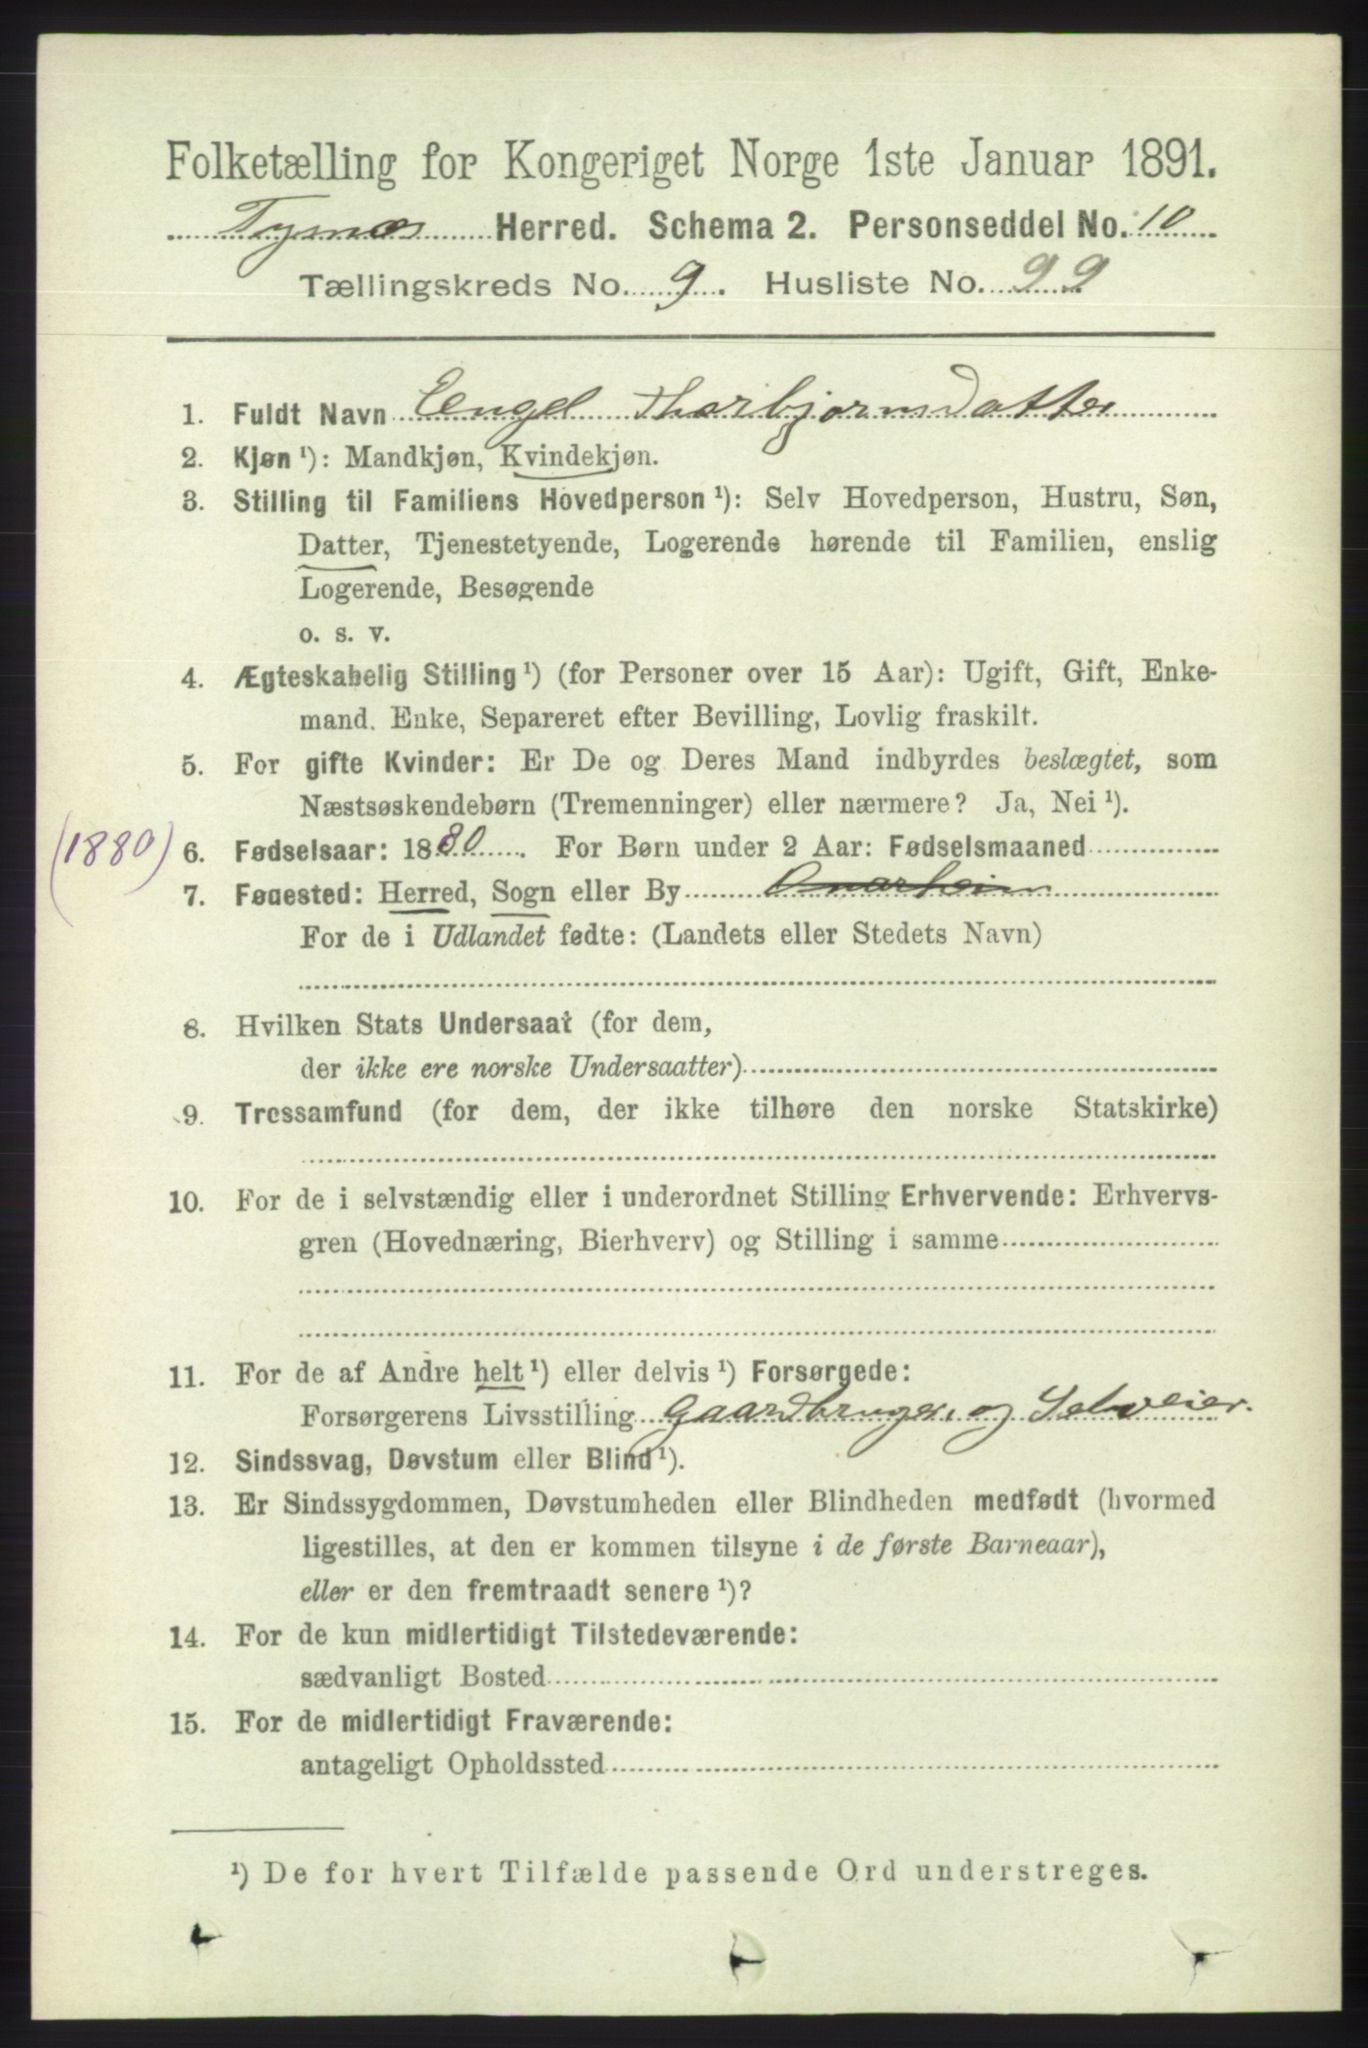 Folketælling for Kongeriget Norge 1ste Januar 1891.
Tysnes Herred. Schema 2. Personseddel No. 10
Tællingskreds No. 9. Husliste No. 99
1. Fuldt Navn Engel Thorbjørnsdatter
2. Kjøn ¹): Mandkjøn, Kvindekjøn.
3. Stilling til Familiens Hovedperson ¹): Selv Hovedperson, Hustru, Søn,
Datter, Tjenestetyende, Logerende hørende til Familien, enslig
Logerende, Besøgende
o. s. v.
4. Ægteskabelig Stilling ¹) (for Personer over 15 Aar): Ugift, Gift, Enke-
mand. Enke, Separeret efter Bevilling, Lovlig fraskilt.
5. For gifte Kvinder: Er De og Deres Mand indbyrdes beslægtet, som
Næstsøskendebørn (Tremenninger) eller nærmere? Ja, Nei ¹).
(1880) 6. Fødselsaar: 1880. For Børn under 2 Aar: Fødselsmaaned
7. Føuested: Herred, Sogn eller By Onarheim
For de i Udlandet fødte: (Landets eller Stedets Navn)
8. Hvilken Stats Undersaat (for dem,
der ikke ere norske Undersaatter)
9. Trossamfund (for dem, der ikke tilhøre den norske Statskirke)
10. For de i selvstændig eller i underordnet Stilling Erhvervende: Erhvervs-
gren (Hovednæring, Bierhverv) og Stilling i samme
11. For de af Andre helt ¹) eller delvis ¹) Forsørgede:
Forsørgerens Livsstilling Gaardbruger, og Selveier.
12. Sindssvag, Døvstum eller Blind ¹).
13. Er Sindssygdommen, Døvstumheden eller Blindheden medfødt (hvormed
ligestilles, at den er kommen tilsyne i de første Barneaar),
eller er den fremtraadt senere ¹)?
14. For de kun midlertidigt Tilstedeværende:
sædvanligt Bosted
15. For de midlertidigt Fraværende:
antageligt Opholdssted
¹) De for hvert Tilfælde passende Ord understreges.